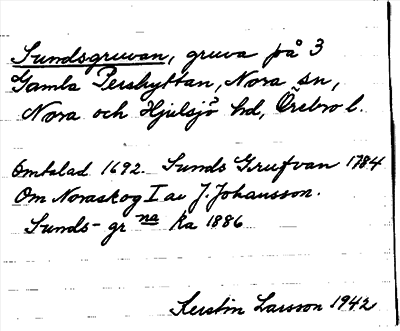 Sundsgruvan, gruva på 3
Gamla Pershyttan, Nora sn,
Nora och Hjulsjö hd, Örebro l.
Omtalad 1692. Sunds Grufvan 1784
Om Noraskog I av J. Johansson.
Sunds-gr na ka 1886
Kerstin Larsson 1942